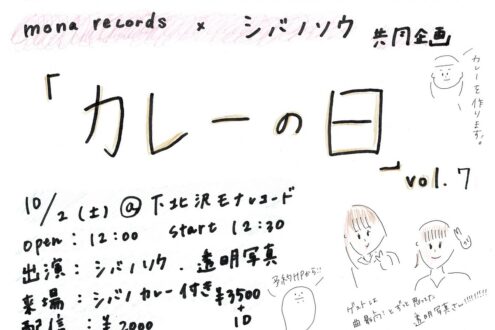 mona records × シバノソウ 共同企画
「カレーの日」vol.7
カレーを作ります。
10/2(土)@下北沢モナレコード
open: 12:00 start 12:30
出演:シバノソウ.透明写真
来場:シバノカレー付き¥3500
+1D
配信:¥2000
予約HPから!
ゲストは
透明写真さん!!!!!!!